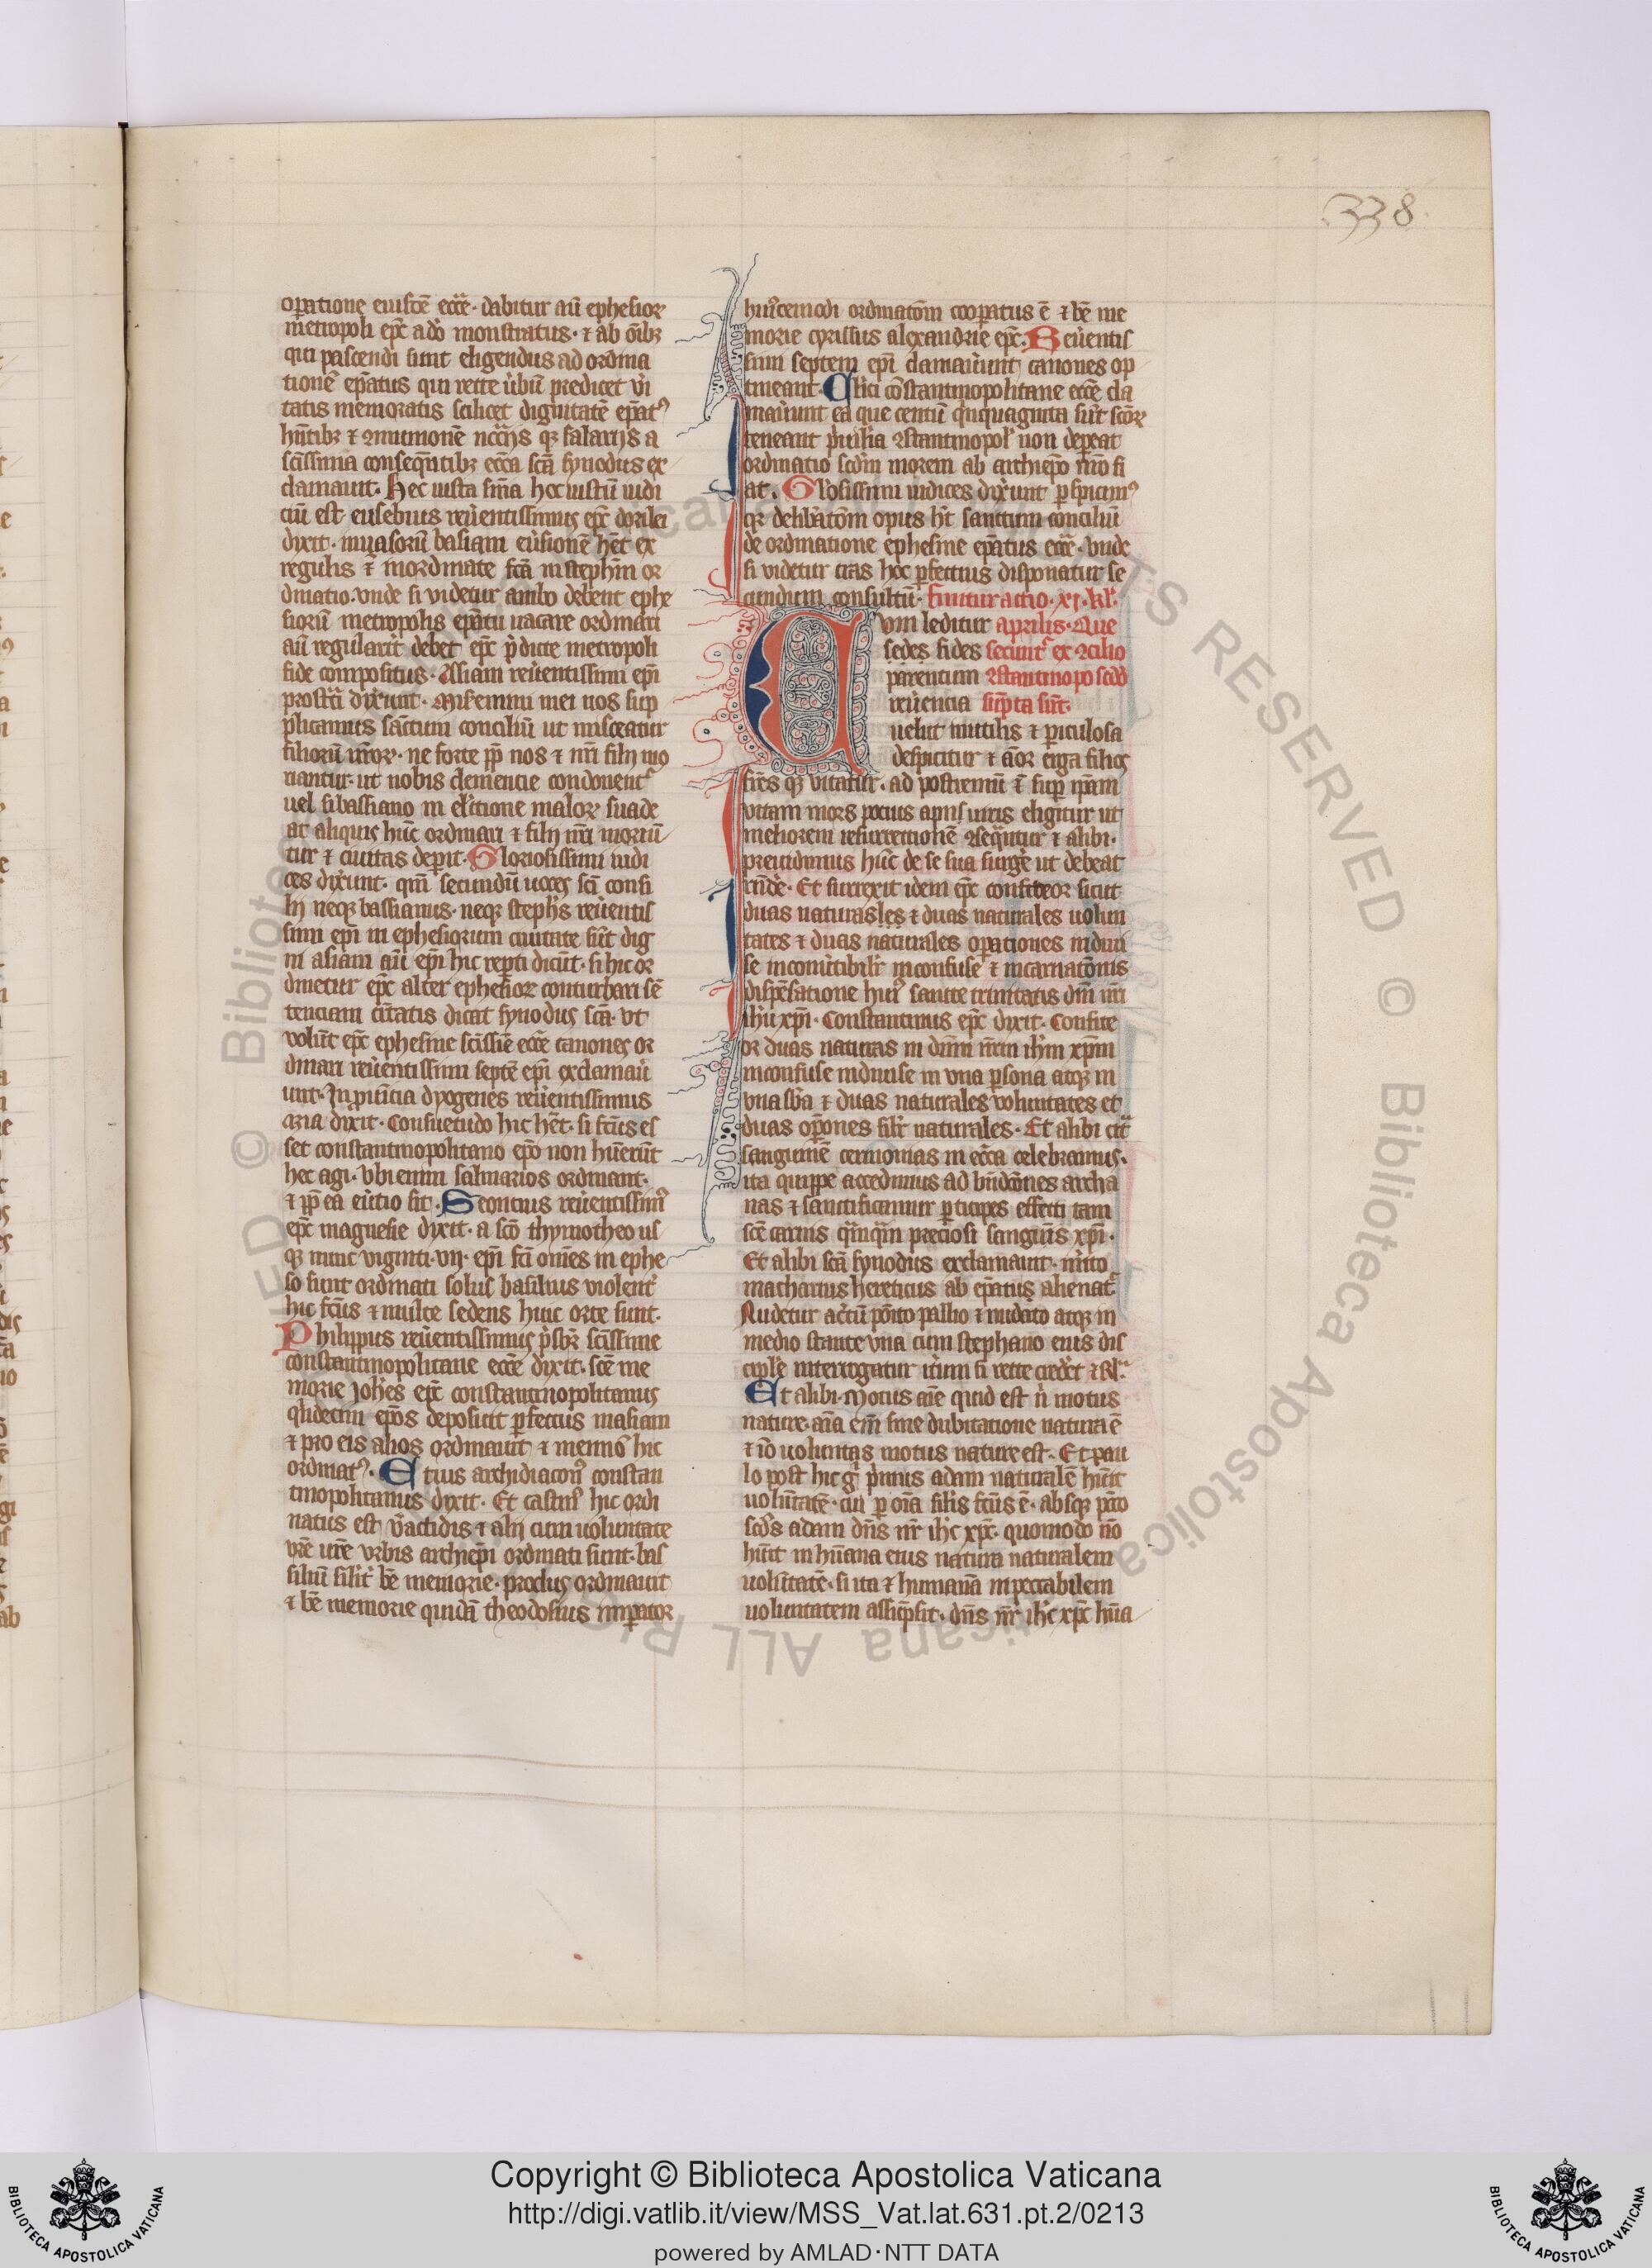 .338.
oꝑatione eiusdē ecc̄e · dabitur aū ephesioꝝ
metropoli ep̄c a do monstratus · ⁊ ab oībꝫ
qui pascendi sunt eligendus ad ordina
tionē ep̄atus qui recte ūbū predicet v̄i
tatis memoratis scilicet dignitatē ep̄atꝰ
hn̄tibꝫ ⁊ ꝯmunionē ncc̄ijs qꝫ salarijs a
sc̄issima conseqn̄tibꝫ ecc̄a sc̄a synodus ex
clamauit. Hec iusta sn̄ia hoc iustū iudi
ciū est eusebius reuēentissimus ep̄c dorilei
dixit · inuasorū basiam
regulis ⁊ inordinate fc̄a in steph̄m or
dinatio · vnde si videtur ambo debent ephe
siorū metropolis ep̄atu uacare ordinari
aū regularit̄ debet ep̄c p̄dicte metropoli
fide compositus · Asiam reuēentissimi ep̄i
prostrati dixerunt · Miseremini mei nos sup
plicamus sāctum conciliū ut misceatur
filiorū nr̄oꝝ · ne forte ꝓp̄ nos ⁊ nr̄i filij mo
riantur · ut nobis clementie condonent̄
uel si bassiano in electione maloꝝ suade
at aliquis hūc ordinari ⁊ filij nr̄i moriū
tur ⁊ ciuitas deperit · Gloriosissimi iudi
ces dixerunt · qm̄ secundū uoces sc̄i consi
lij neqꝫ bassianus · neqꝫ steph̄s reuēentis
simi ep̄i in ephesiorum ciuitate sūt dig
ni asiam aū ep̄i hic reperti dicūt · si hic or
dinetur ep̄c alter ephesioꝝ conturbari sē
tentiam ciuitatis dicat synodus sc̄a · vt
volūt ep̄c ephesine sc̄issime ecc̄e canones or
dinari reuēentissimi septē ep̄i exclamau
unt · In prouincia dyogenes reuēentissimus
dixit · Consuetudo hic hēt · si fc̄us es
set constantinopolitano ep̄o non
hec agi · Vbi enim salmarios ordinant ·
⁊ ꝓp̄ ea euersio fit · Leoncius reuēentissimꝰ
ep̄c magnesie dixit · a sc̄o thymotheo us
qꝫ nunc viginti · vij · ep̄i fc̄i omēs in ephe
so sunt ordinati solus basilius violent̄
hic fc̄us ⁊ multe sedens huic orte sunt ·
Philippus reuēentissimus p̄sbꝫ sc̄issime
constantinopolitane ecc̄e dixit · sc̄e me
morie ioh̄es ep̄c constantinopolitanus
qͥdecim ep̄os deposuit ꝑfectus in asiam
⁊ pro eis alios ordinauit ⁊ hic
ordinatꝰ · Etius archidiaconꝰ constan
tinopolitanus dixit · Et castinꝰ hic ordi
natus est ⁊ alij cum uoluntate
vrē vrbis archiep̄i ordinati sunt · bas
siliū silit̄ bē memorie · proclus ordinauit
⁊ bē memorie quidā theodosius imperator
huiꝰcemodi ordinatōm cooꝑatus ē ⁊ bē me
morie cyrillus alexandrie ep̄c · Reuēentis
simi septem ep̄i clamauerunt canones op
tineant · Clerici cōstantinopolitane ecc̄e cla
mauerunt ea que centū quinquaginta sūt sc̄oꝝ
teneant priuilegia ꝯstantinopol̄ non depereat
ordinatio scd̄m morem ab archiep̄o nr̄o fi
at. Gloriosissimi iudices dixerunt perspicimꝰ
qꝫ deliberatōm opus h̄t sanctum conciliū
de ordinatione ephesine ep̄atus ecc̄e · vnde
si videtur cras hoc perfectius disponatur se
cundum consultū · finitur actio · xi · kl.
Vm leditur aprilis · Que
sedes fides secunt̄ ex ꝯcilio
parentum ꝯstantinopo scd̄o
reuēencia scripta sūt ·
uelut inutilis ⁊ periculosa
despicitur ⁊ aōr erga filios
frēs qꝫ vitatur · ad postremū ⁊ sup ip̄am
vitam mors pocius apud uiros eligitur ut
meliorem resurrectionē ꝯsequitur ⁊ alibi ·
preuidimus hūc de se sua surgere ut debeat
rn̄dere · Et surrexit idem ep̄c confiteor sicut
duas naturas les ⁊ duas naturales uolun
tates ⁊ duas naturales operationes indiui
se incouertibilit̄ inconfuse ⁊ incarnatōnis
dispēsatione huiꝰ sancte trinitatis dn̄i nr̄i
ih̄u xp̄i · Constantinus ep̄c dixit · Confite
or duas naturas in dn̄m nr̄m ih̄m xp̄m
inconfuse indiuise in vna persona atqꝫ in
vna sb̄a ⁊ duas naturales voluntates et
duas oꝑones silit̄ naturales · Et alibi citͣ
sanguinē cerimonias in ecc̄a celebramus ·
ita quippe accedimus ad bn̄dc̄ones archa
nas ⁊ sanctificamur perticipes effecti tam
sc̄e carnis qͣmqͣm preciosi sanguinis xp̄i ·
Et alibi sc̄a synodus exclamauit · merito
macharius hereticus ab ep̄atus alienat̄
Nudetur actutū posito pallio ⁊ nudato atqꝫ in
medio stante vna cum stephano eius dis
cipulo interrogatur iterum si recte crederet ⁊ kl.
Et alibi · Motus aīe quid est n̄ motus
nature · aīa enī sine dubitatione natura ē
⁊ iō uoluntas motus nature est · Et pau
lo post hic g̊ primus adam naturalē habuit
uolūtatē · cui per oīa silis fc̄us ē · absqꝫ pc̄co
sc̄ds adam dn̄s nr̄ ih̄c xp̄c · quomodo nō
habuit in hūana eius natura naturalem
uolūtatē · si ita ⁊ humanā inpeccabilem
uoluntatem assūpsit · dn̄s nr̄ ih̄c xp̄c hūa
© Biblioteca Apostolica Vaticana ALL RIGHTS RESERVED
Copyright © Biblioteca Apostolica Vaticana
http://digi.vatlib.it/view/MSS_Vat.lat.631.pt.2/0213
powered by AMLAD·NTT DATA
BIBLIOTECA APOSTOLICA VATICANA
BIBLIOTECA APOSTOLICA VATICANA